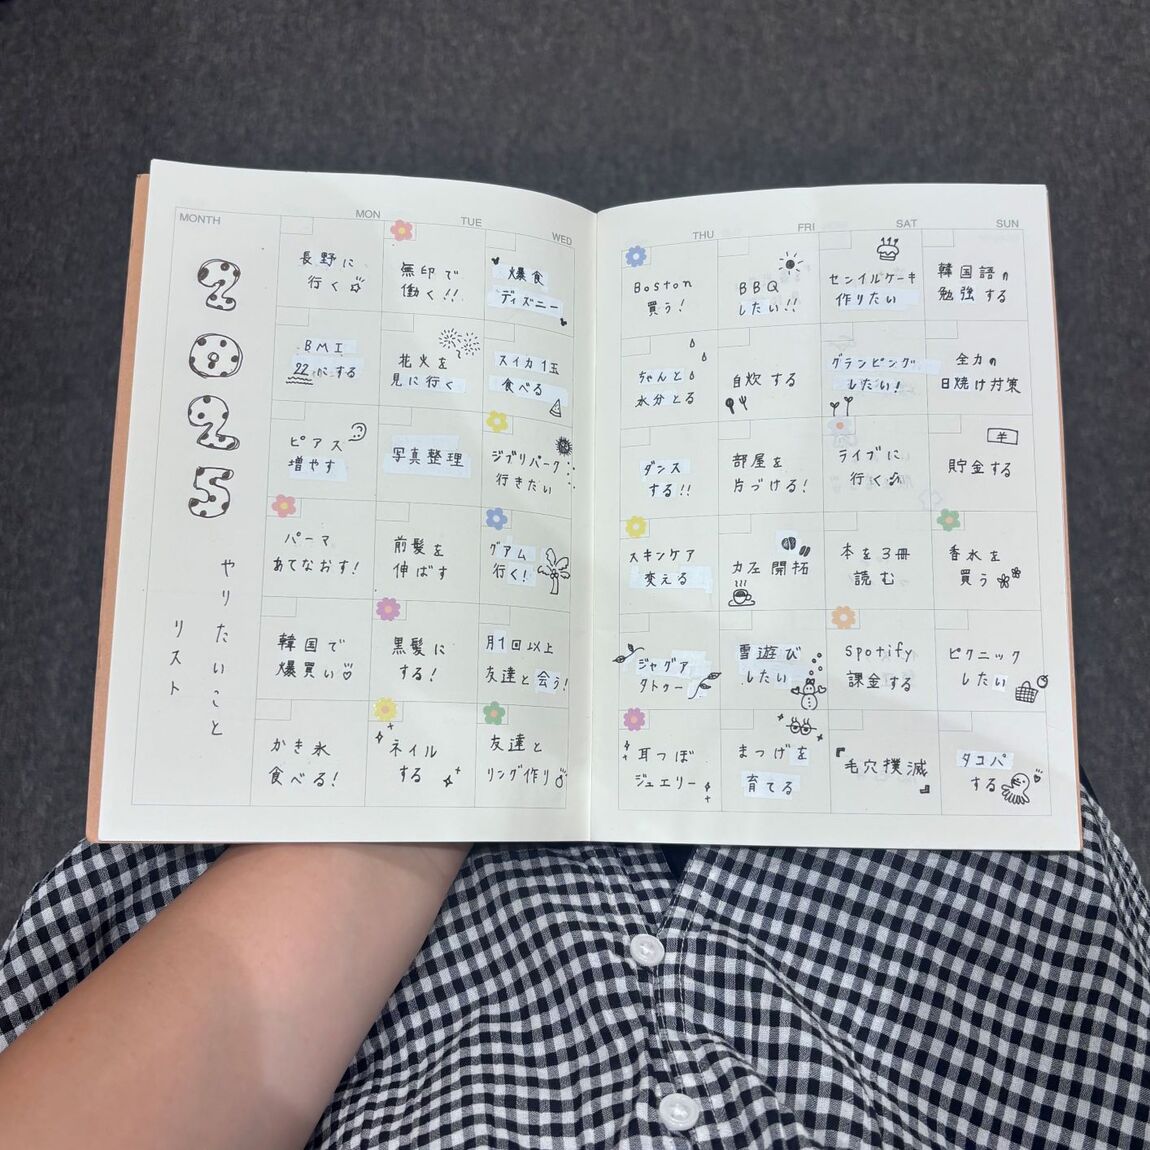 MONTH
MON
TUE
WED
THU
FRI
SAT
SUN
2
0
2
5
やりたいこと
リスト
長野に
行く
無印で
働く!!
爆食
ディズニー
Boston
買う!
BBQ
したい!!
センイルケーキ
作りたい
韓国語の
勉強する
BMI
22にする
花火を
見に行く
スイカ1玉
食べる
ちゃんと
水分とる
自炊する
グランピング
したい!
全力の
日焼け対策
ピアス
増やす
写真整理
ジブリパーク
行きたい
ダンス
する!!
部屋を
片づける!
ライブに
行く♪
¥
貯金する
パーマ
あてなおす!
前髪を
伸ばす
グアム
行く!
スキンケア
変える
カフェ開拓
本を3冊
読む
香水を
買う
韓国で
爆買い♡
黒髪に
する!
月1回以上
友達と会う!
ジャグア
タトゥー
雪遊び
したい
Spotify
課金する
ピクニック
したい
かき氷
食べる!
ネイル
する
友達と
リング作り
耳つぼ
ジュエリー
まつげを
育てる
『毛穴撲滅』
タコパ
する